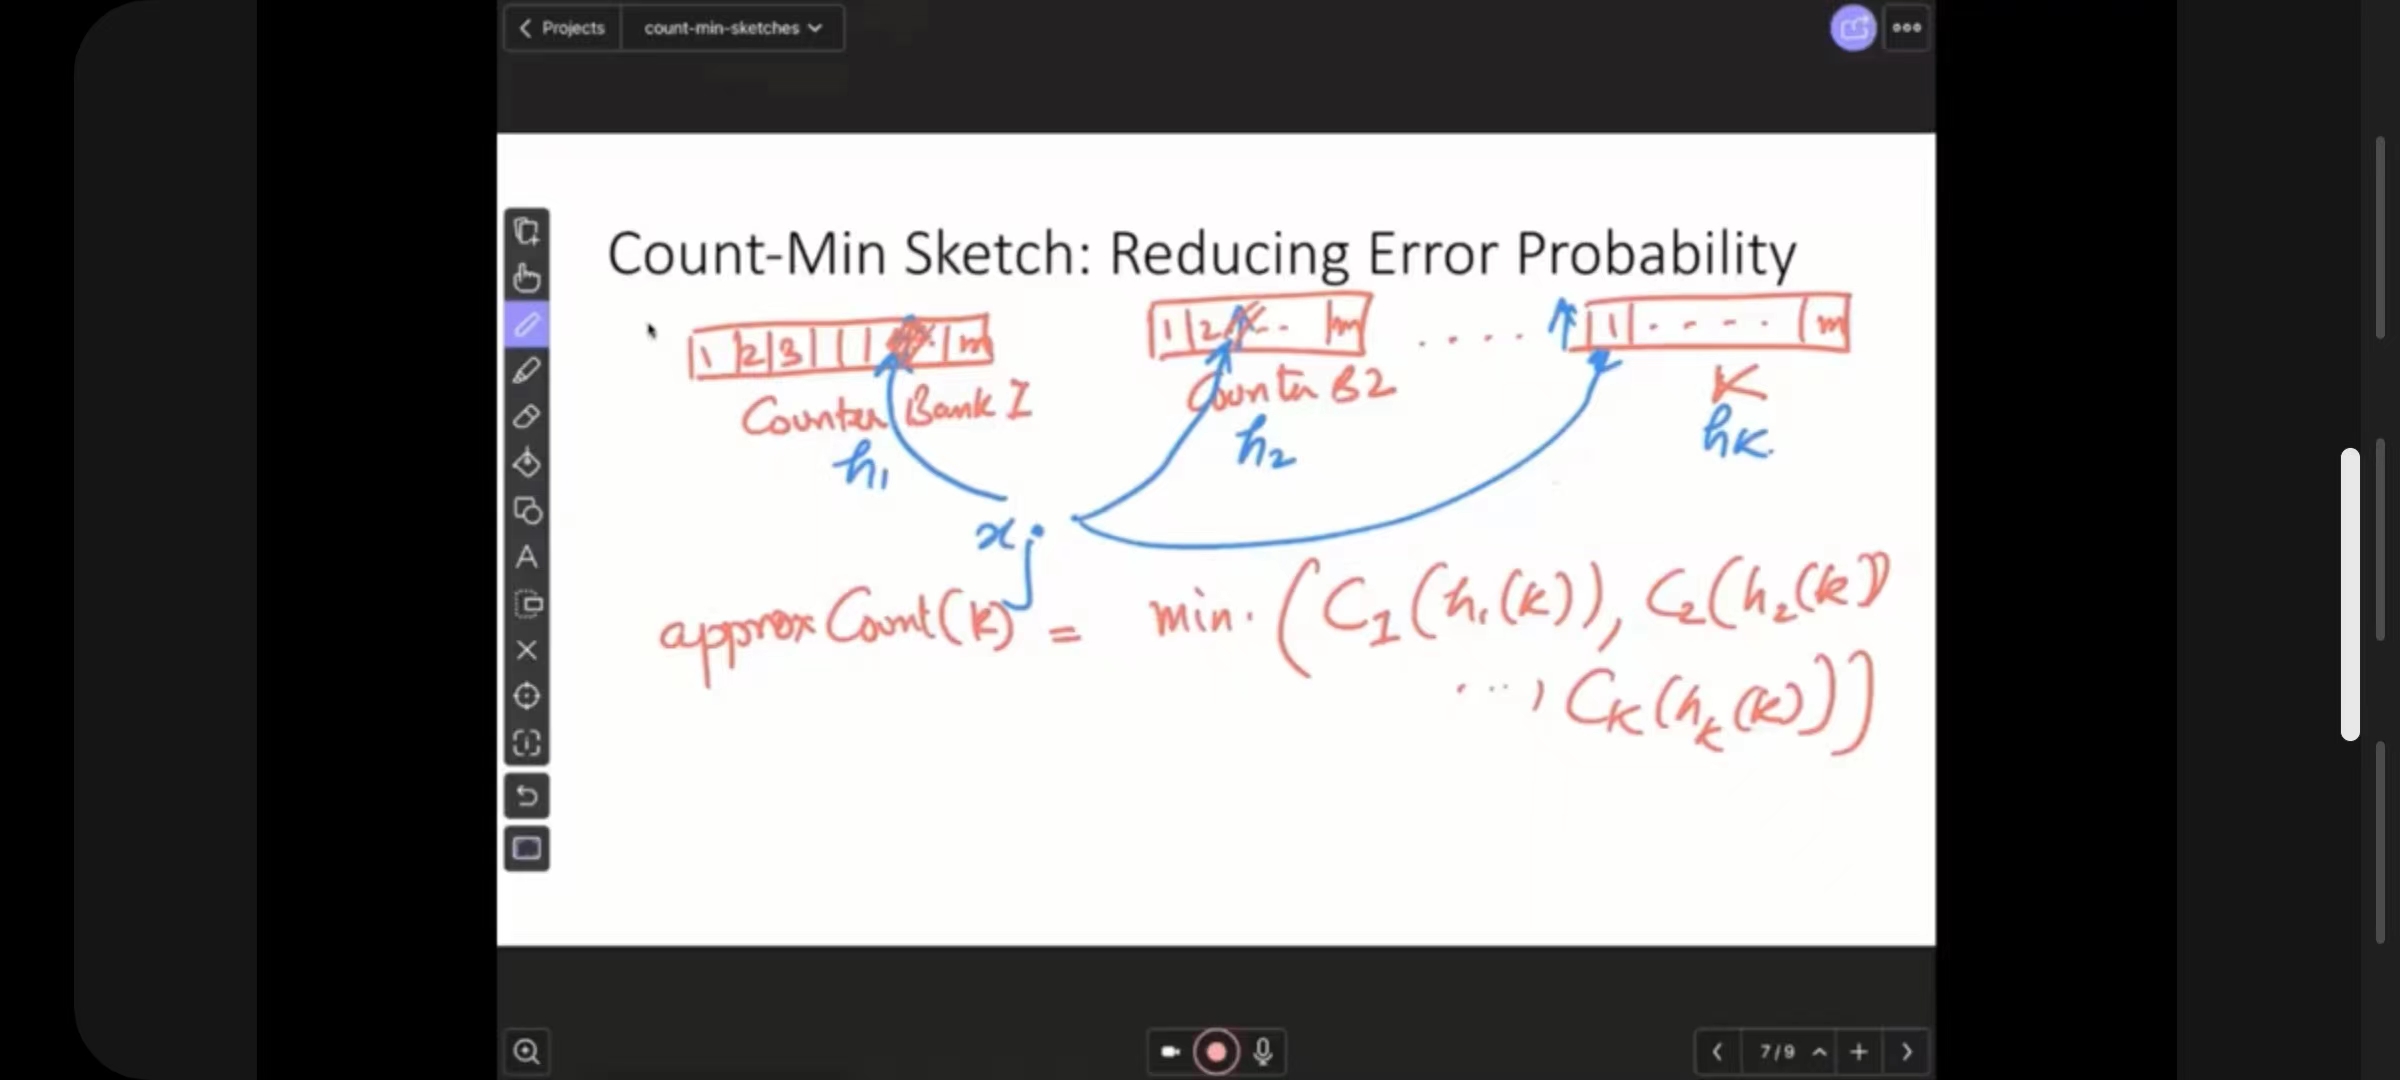 Projects count-min-sketches
Count-Min Sketch: Reducing Error Probability
1 2 3 m
1 2 .. m
.... 1 .... m
Counter Bank I
Counter B2
K
h₁
h₂
hK.
xj
approxCount(k) = min. (C₁(h₁(k)), C₂(h₂(k))
..., CK(hk(k)))
A
7/9